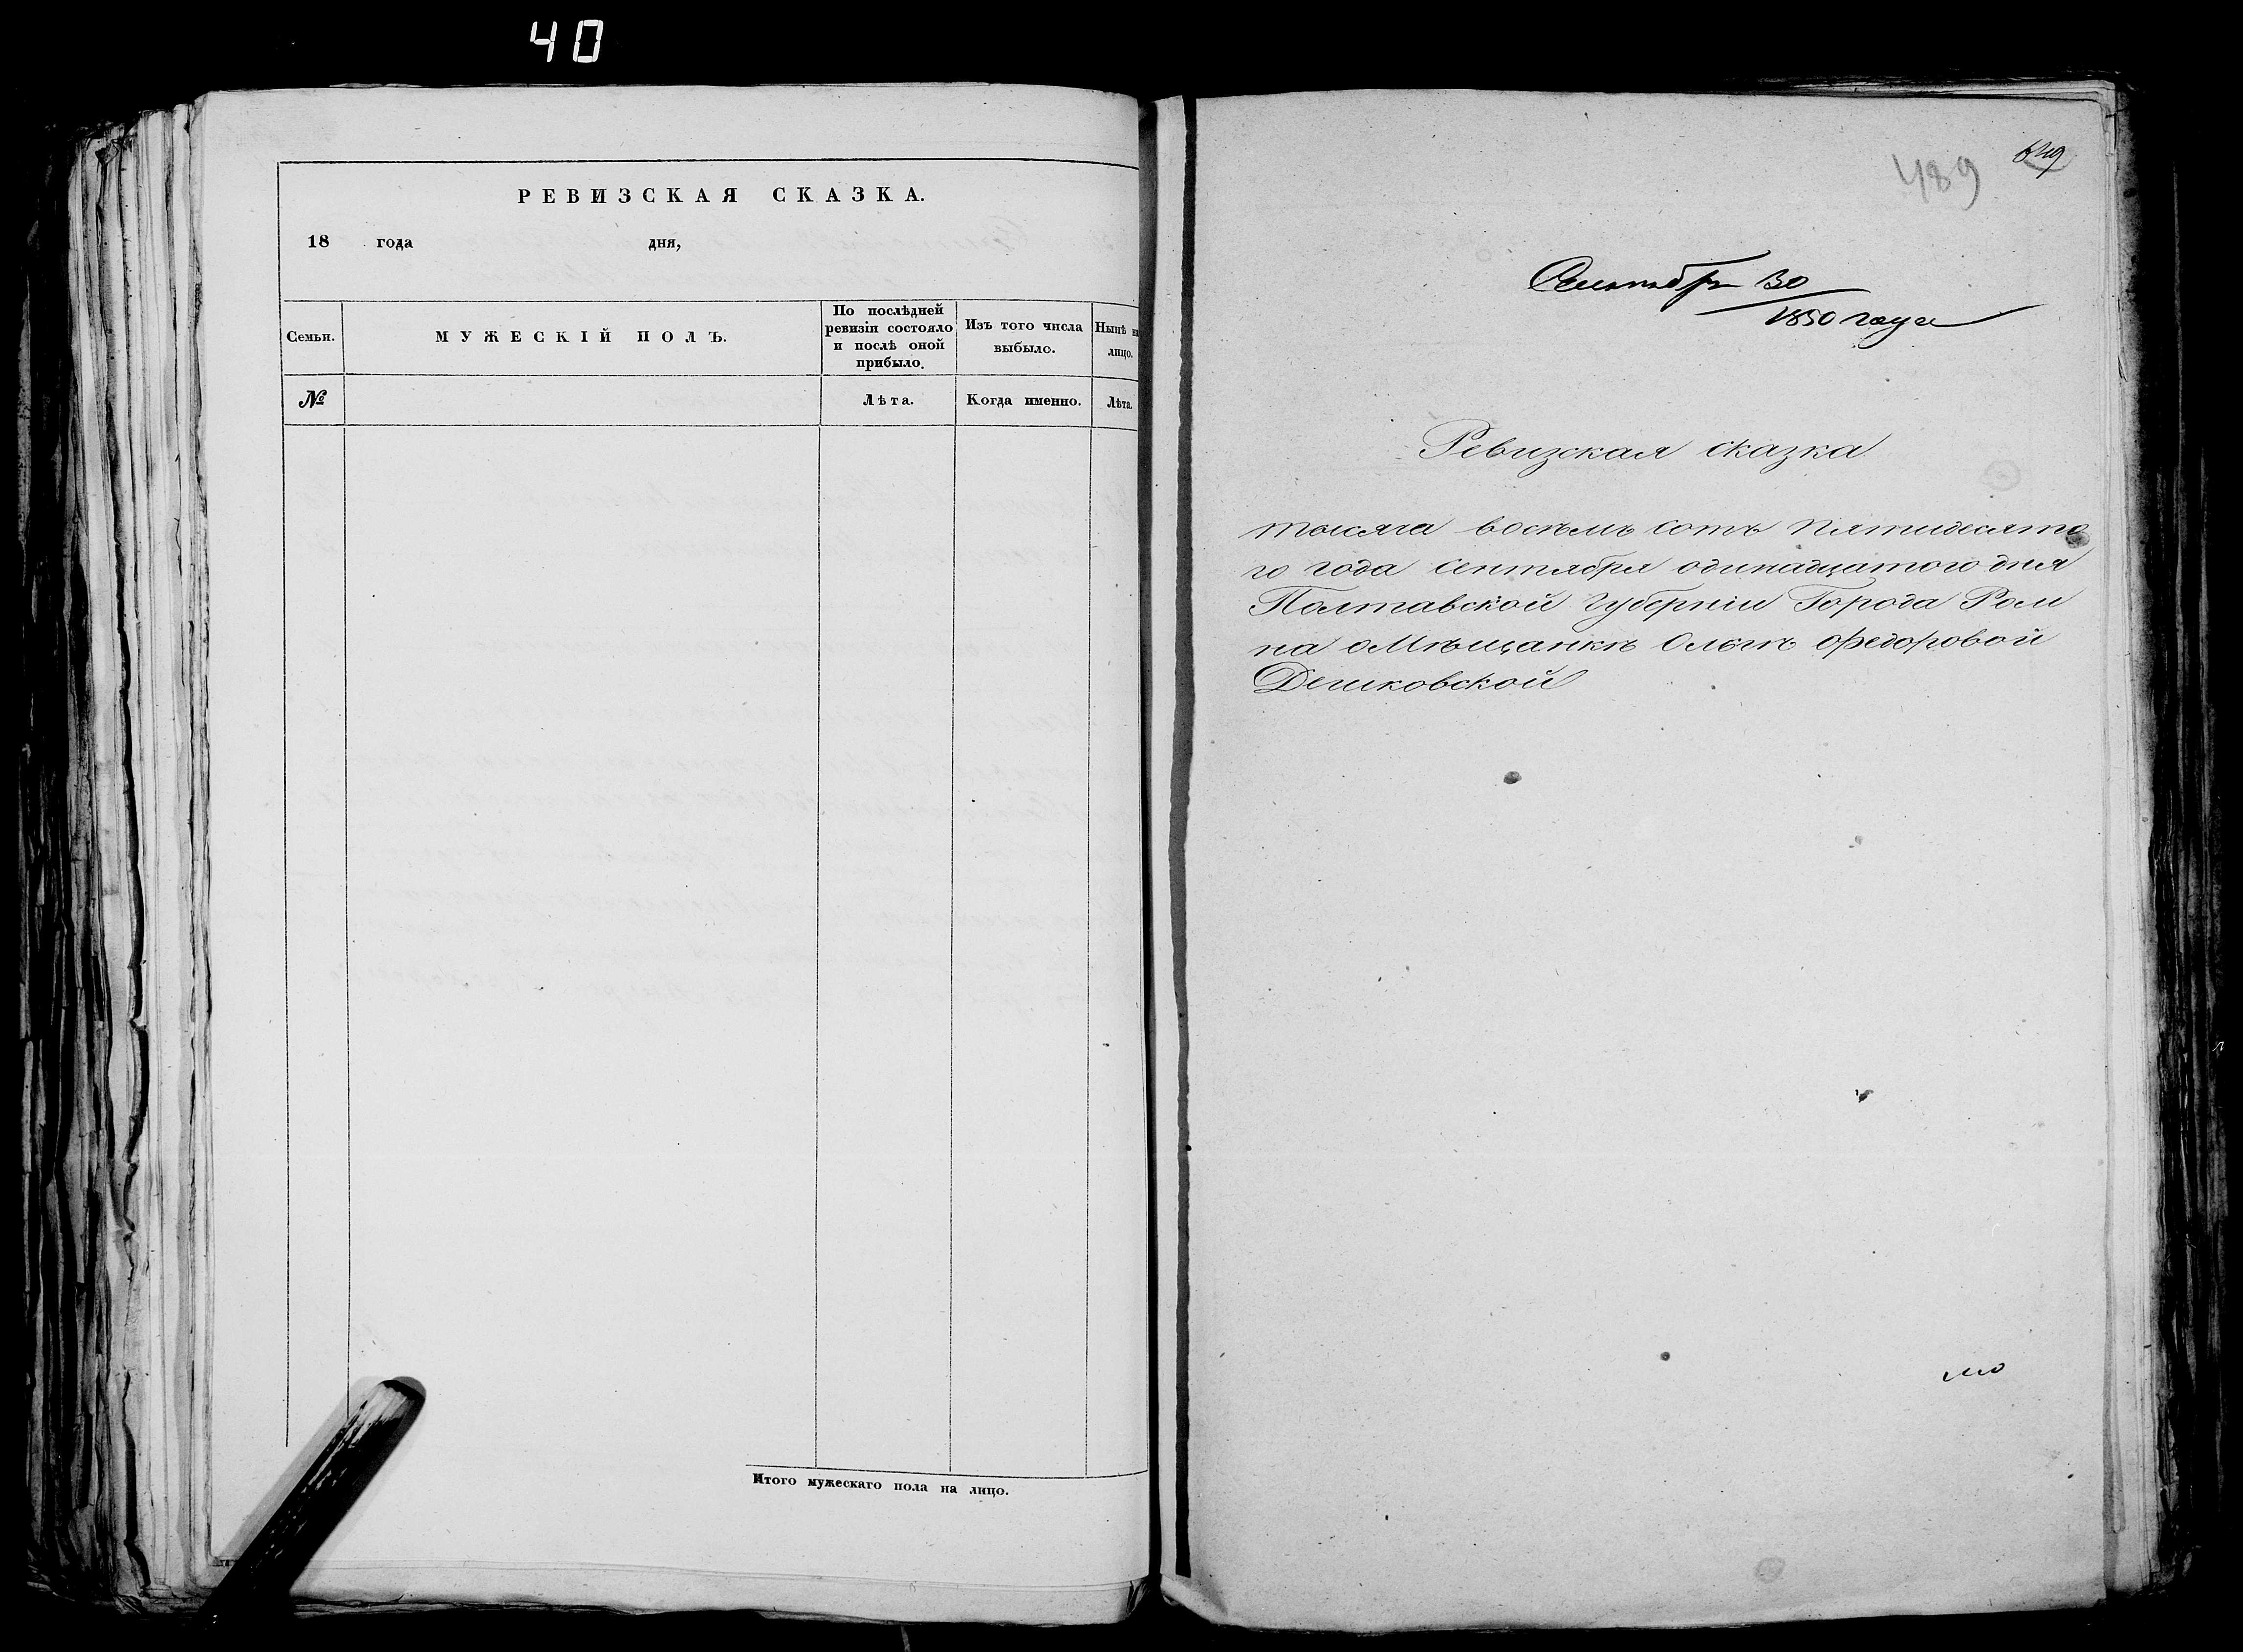 40
РЕВИЗСКАЯ СКАЗКА.
18 года дня,
Семьи.
МУЖЕСКІЙ ПОЛЪ.
По послѣдней
ревизіи состояло
и послѣ оной
прибыло.
Изъ того числа
выбыло.
Нынѣ на
лицо.
№
Лѣта.
Когда именно.
Лѣта.
Итого мужескаго пола на лицо.
489
649
Сентябрь 30
1850 года
Ревизская сказка
тысяча восемь сотъ пятидесято
го года сентября одинадцатого дня
Полтавской губерніи Города Ром
на о Мѣщанкѣ Ольгѣ Федоровой